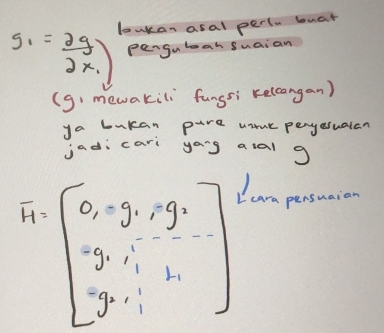 g₁ = ∂g/∂x₁ bukan asal perlu buat
pengubahsuaian
(g₁ mewakili fungsi kekangan)
ya bukan pure untuk penyesuaian
jadi cari yang asal g
cara persuaian
H̄ = [0, -g₁, -g₂
-g₁,
-g₂, L₁]